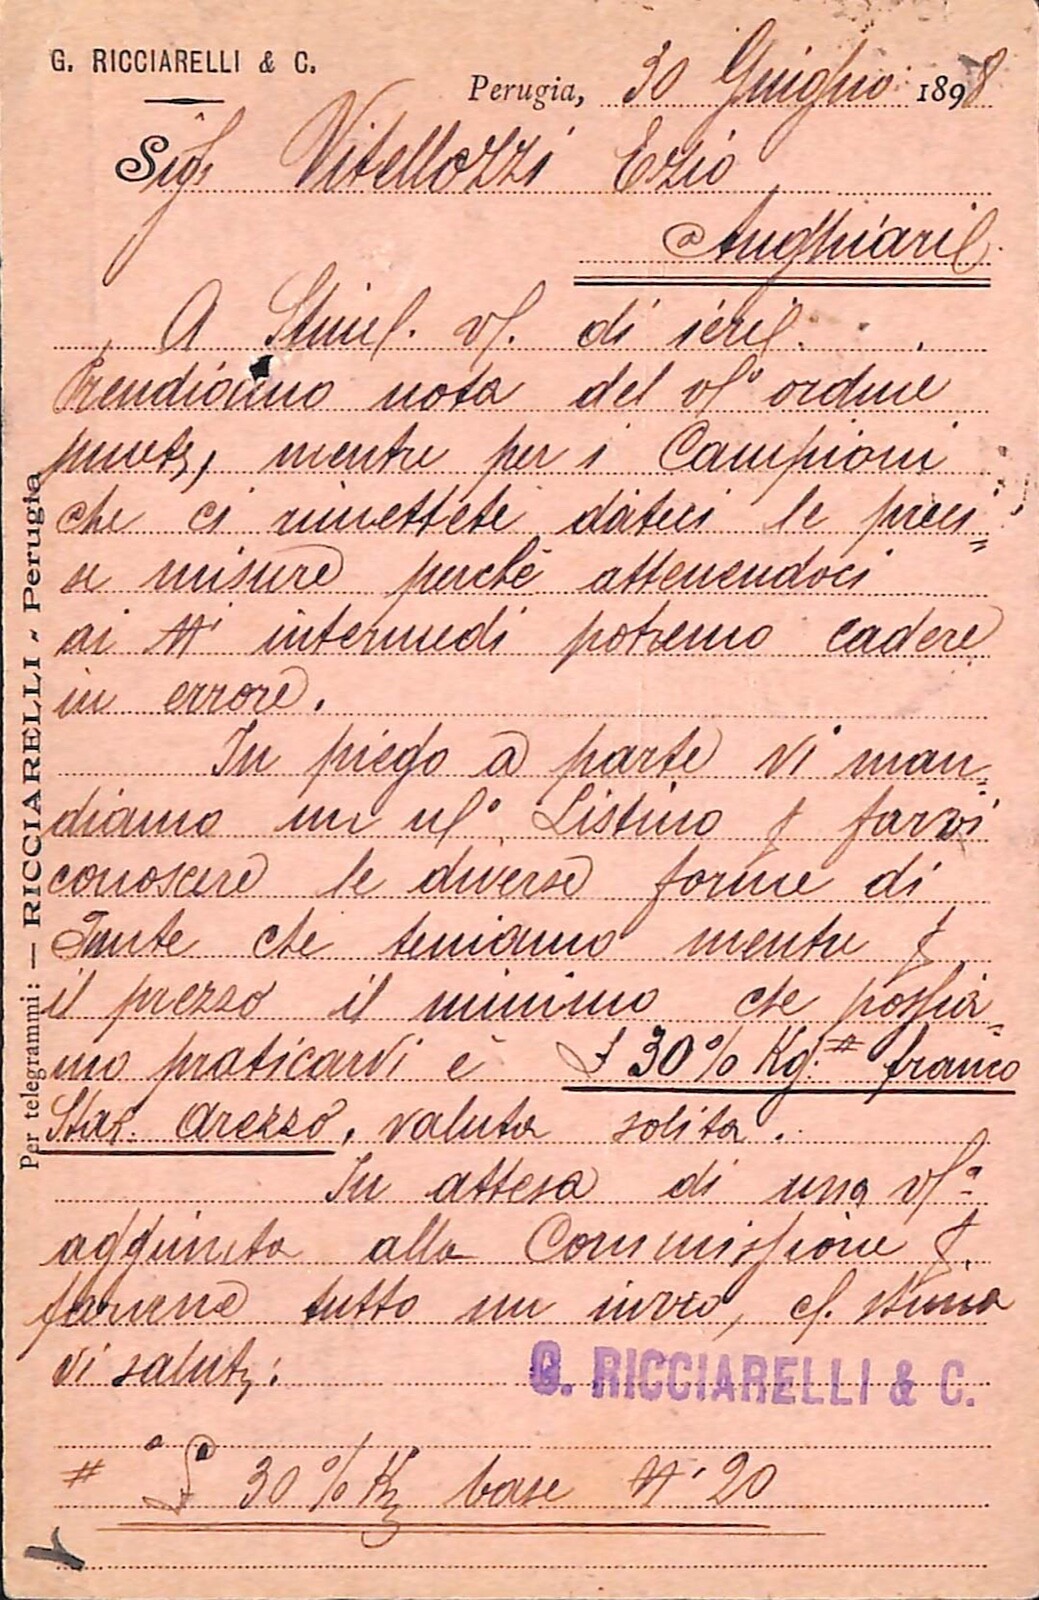 G. RICCIARELLI & C.
Perugia, 30 Giugno 1898
Sigr Vitellozzi Ezio
Anghiari
A Stim. vs. di ieri.
Prendiamo nota del vso ordine
punte, mentre per i Campioni
che ci rimettete dateci le preci=
se misure perchè attenendoci
ai Ni intermedi potremo cadere
in errore.
In piego a parte vi man=
diamo un nso Listino farvi
conoscere le diverse forme di
Punte che teniamo mentre
il prezzo il minimo che possia=
mo praticarvi è £ 30 % Kg. # franco
Staz. Arezzo, valuta solita.
In attesa di una vsa
aggiunta alla Commissione
farvene tutto un invio, vi salut:
G. RICCIARELLI & C.
# £ 30 % Kg base No 20
Per telegrammi: — RICCIARELLI - Perugia